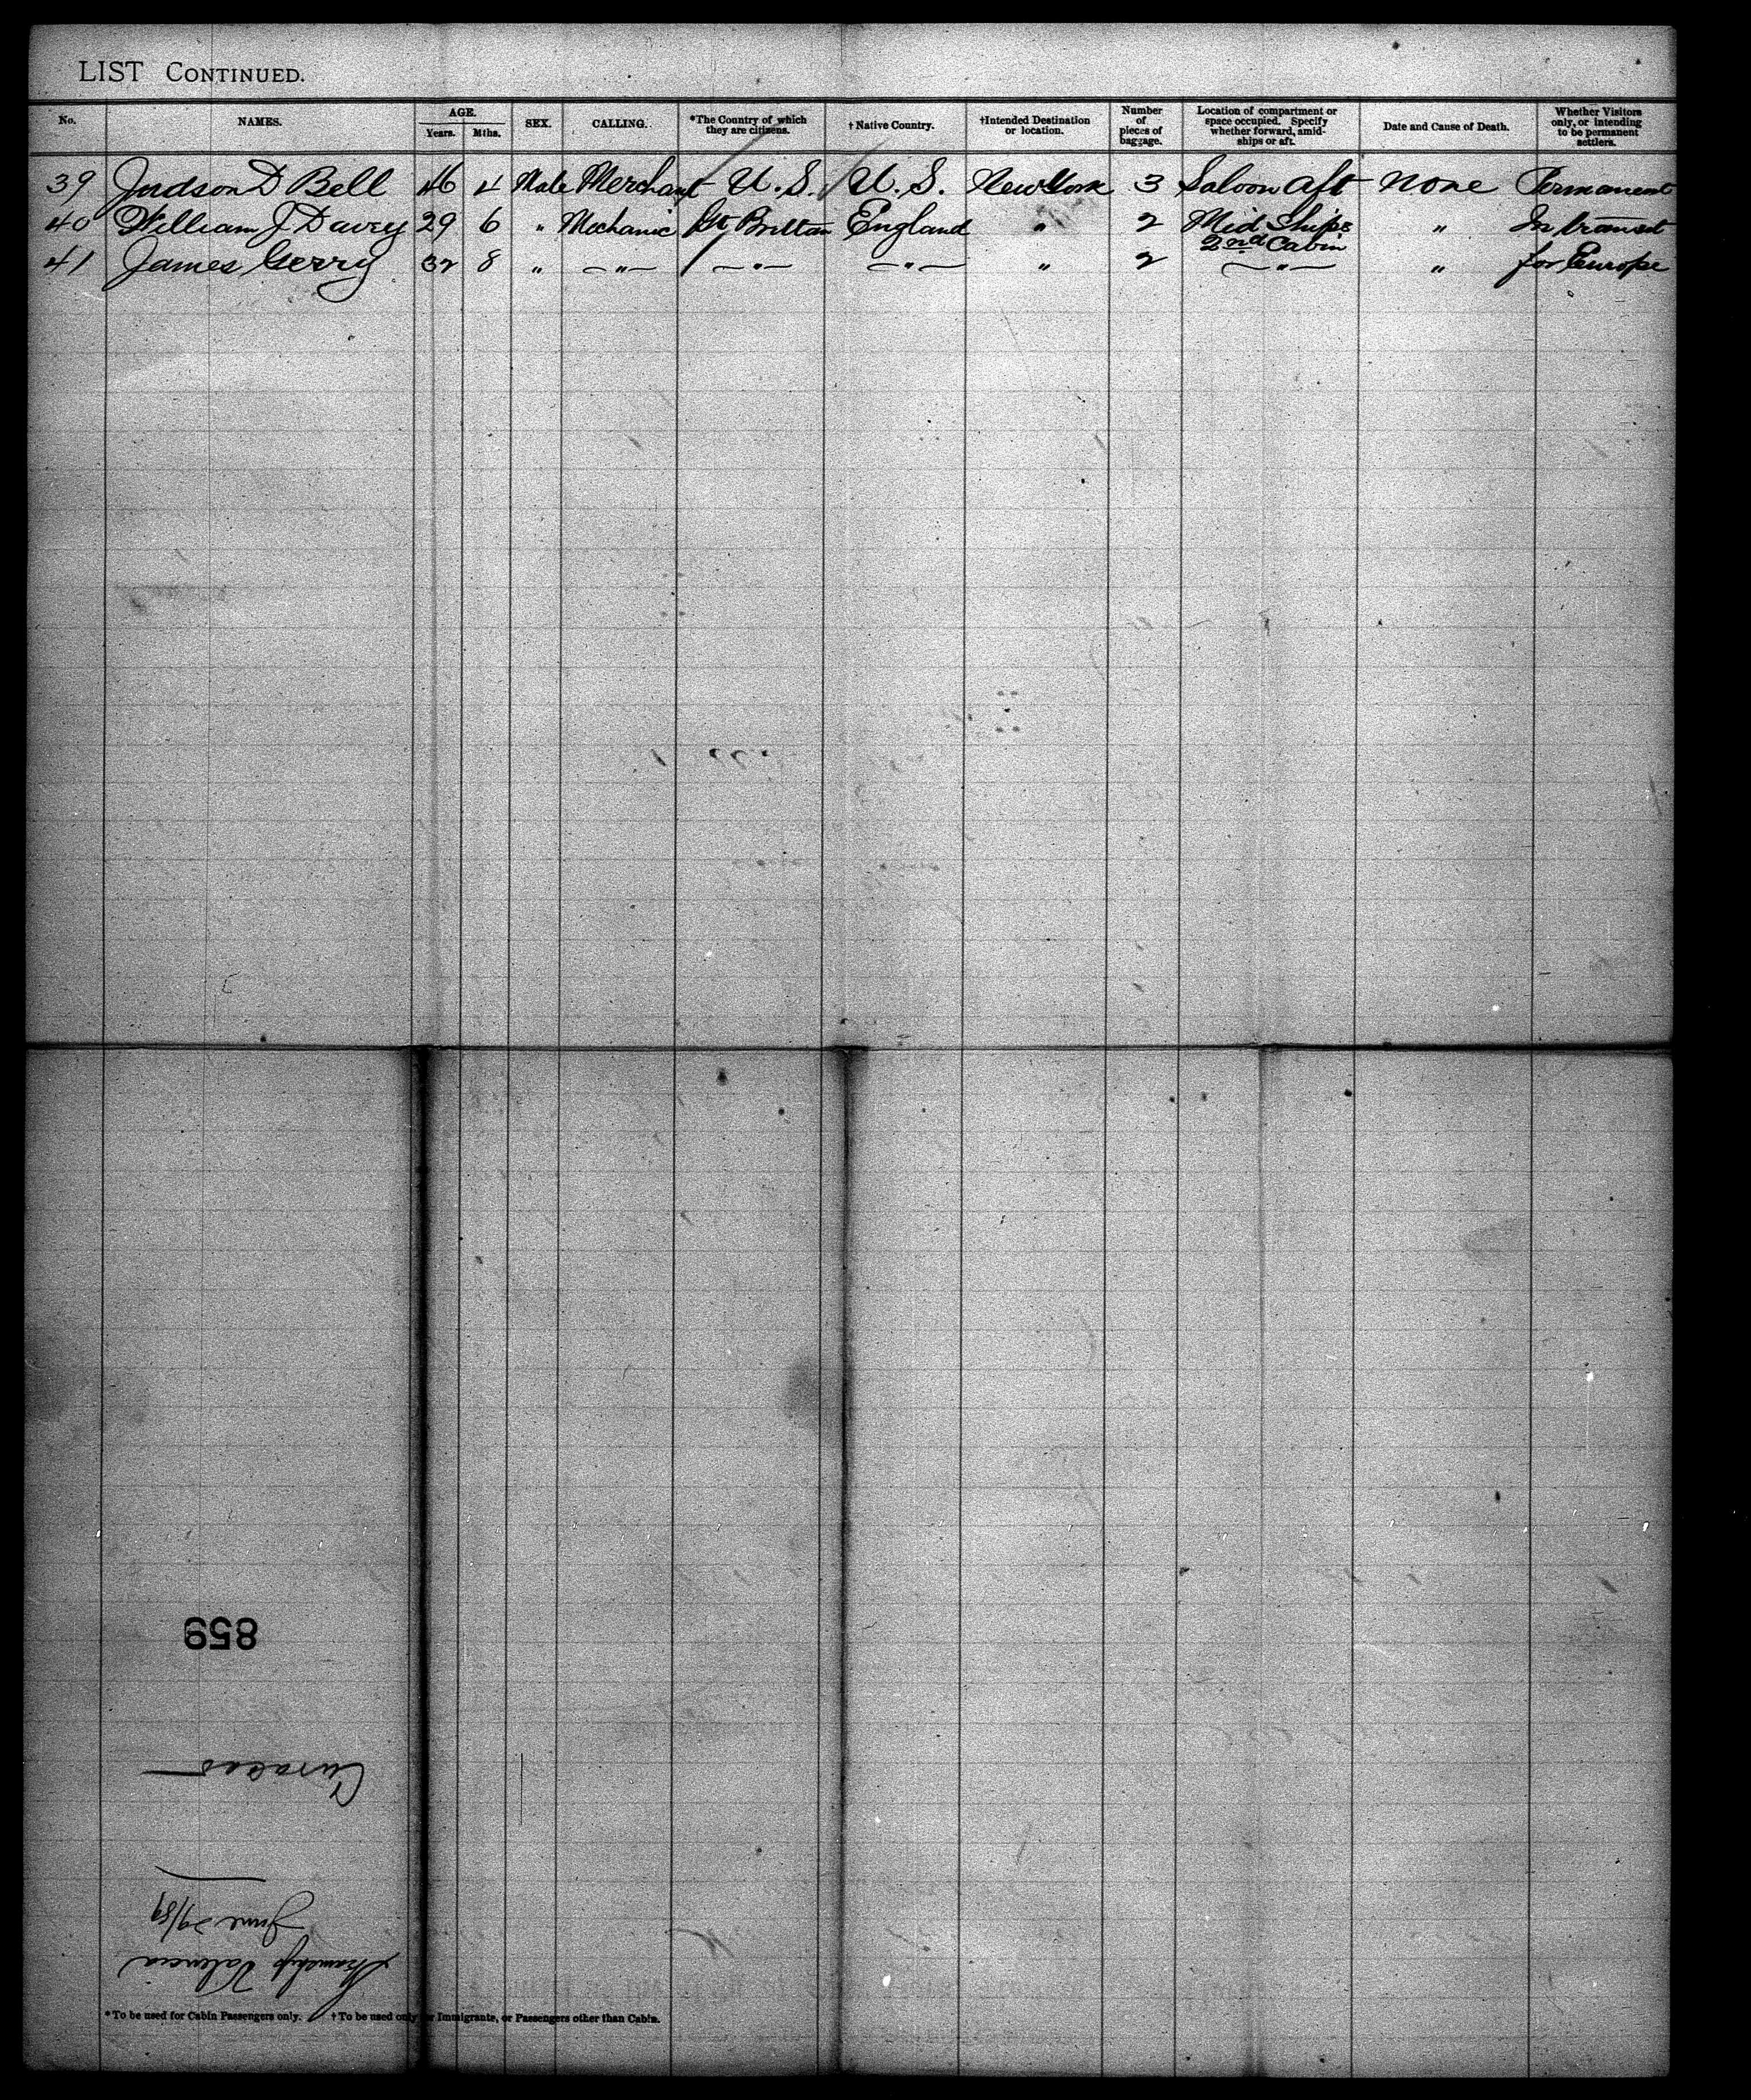 LIST CONTINUED.
No. NAMES. AGE. Years. Mths. SEX. CALLING. *The Country of which they are citizens. †Native Country. †Intended Destination or location. Number of pieces of baggage. Location of compartment or space occupied. Specify whether forward, amidships or aft. Date and Cause of Death. Whether Visitors only, or intending to be permanent settlers.
39 Judson D Bell 46 4 Male Merchant U.S. U.S. New York 3 Saloon aft None Permanent
40 William J Davey 29 6 " Mechanic Gt Brittan England " 2 Mid Ships 2nd Cabin " In transit
41 James Gerry 32 8 " — " — — " — — " — " 2 — " — " for Europe
859
Curacao
Steamship Valencia
June 29/89
*To be used for Cabin Passengers only. †To be used only for Immigrants, or Passengers other than Cabin.